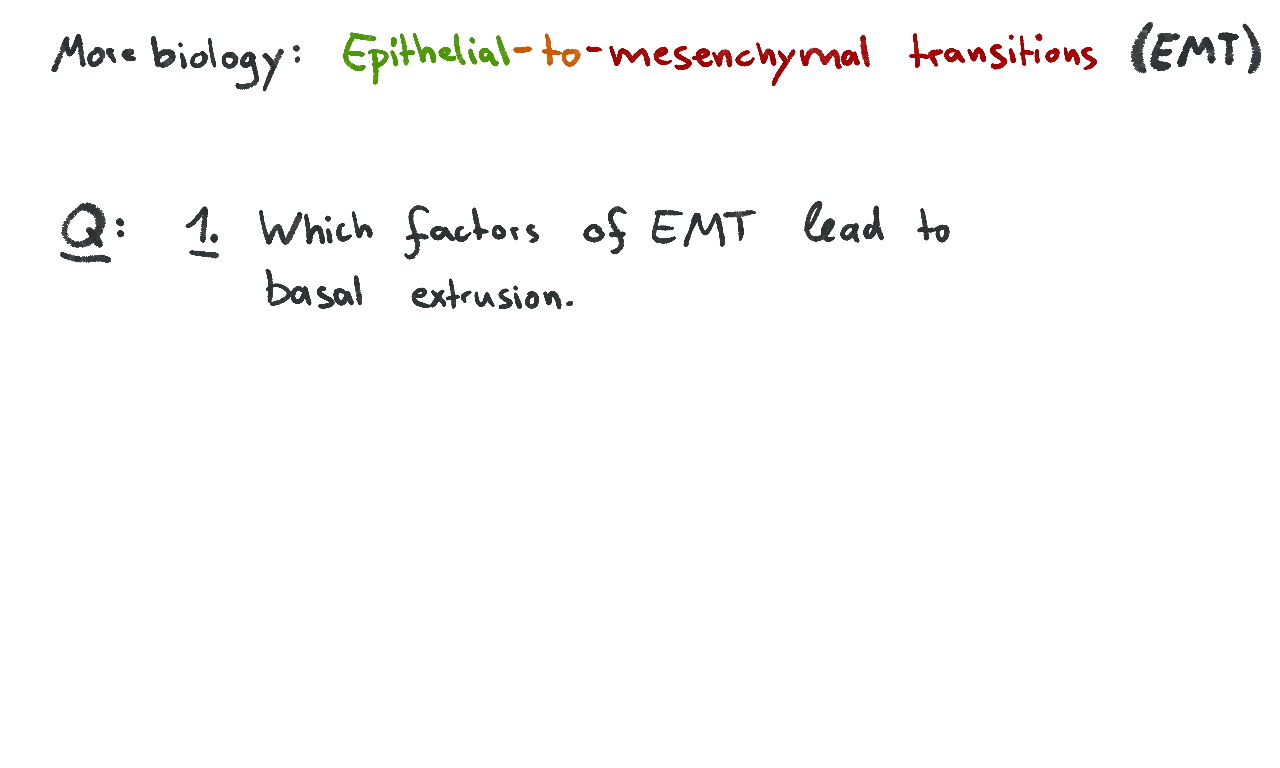 More biology: Epithelial-to-mesenchymal transitions (EMT)
Q: 1. Which factors of EMT lead to
basal extrusion.